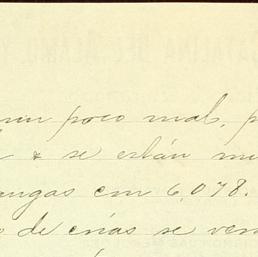 un poco mal, p
& se están mu
angas con 6,078.
de crías se ven